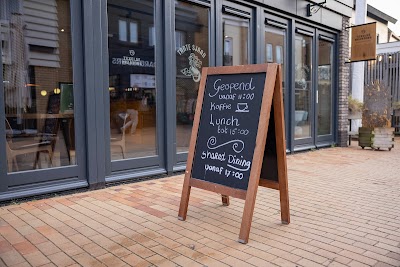 Geopend
vanaf 11:00
Koffie
Lunch
tot 15:00
Shared Dining
vanaf 17:00